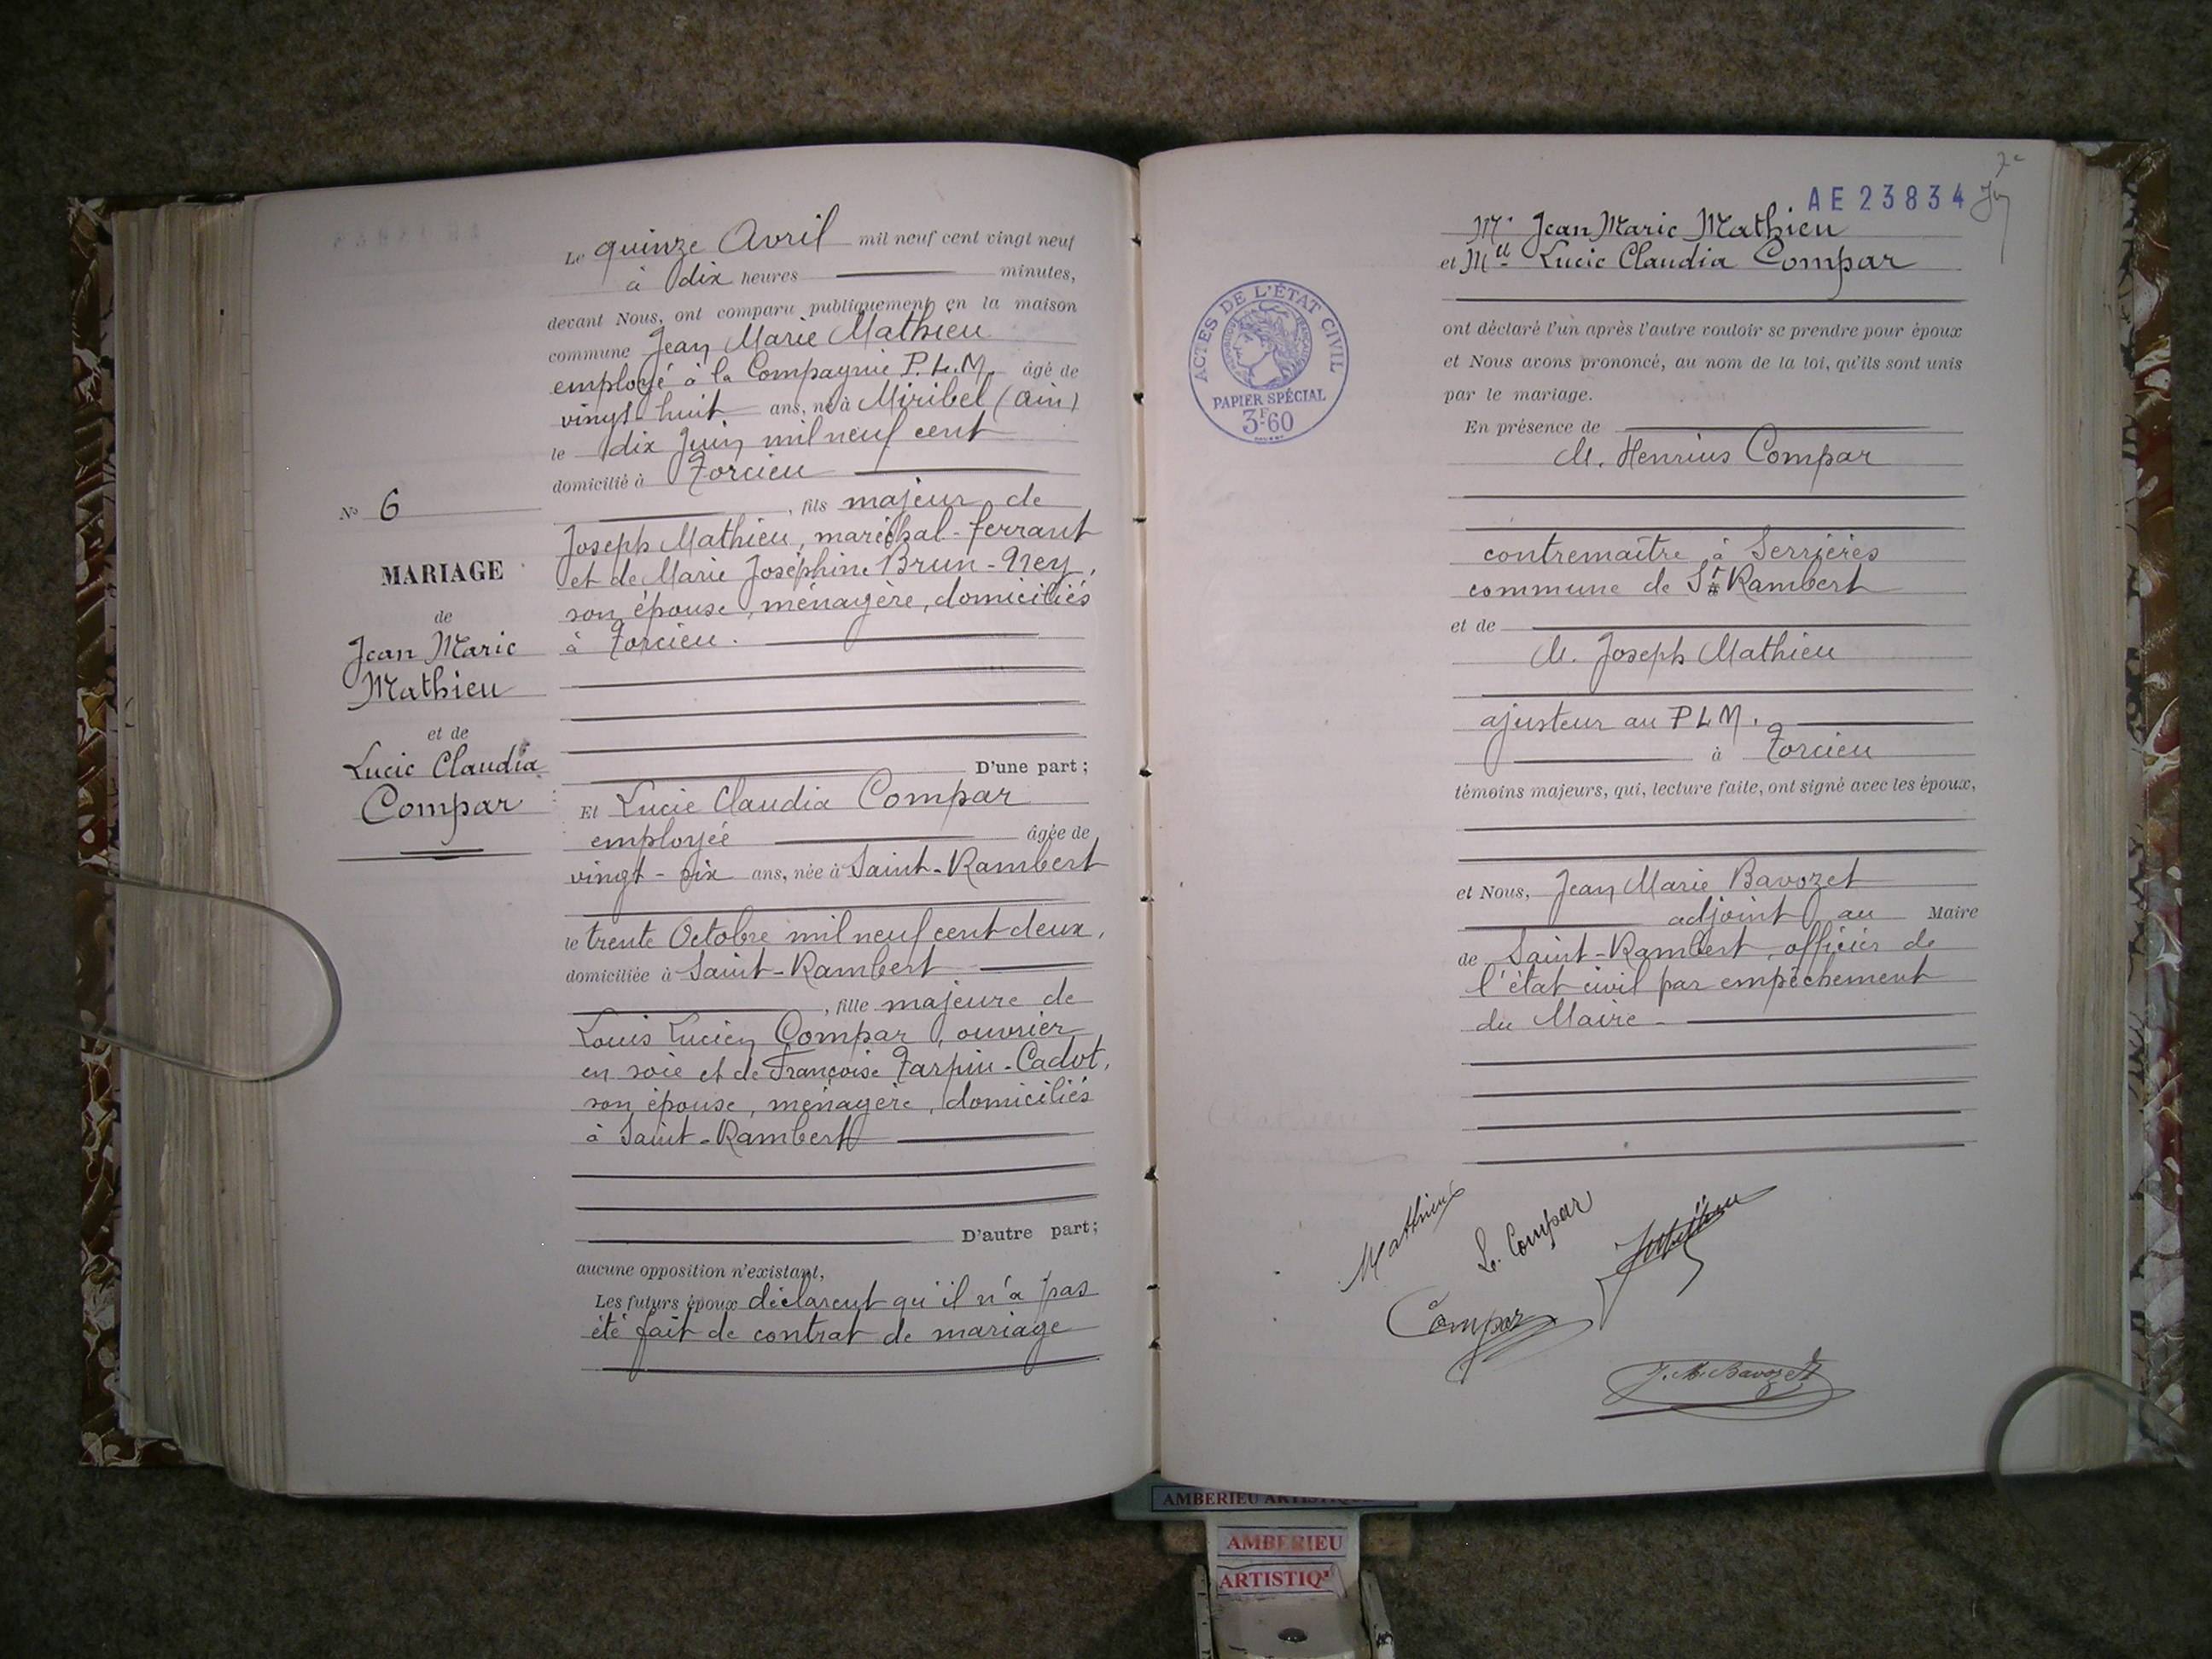 Le quinze Avril mil neuf cent vingt neuf
à dix heures minutes,
devant Nous, ont comparu publiquement en la maison
commune Jean Marie Mathieu
employé à la Compagnie P.L.M. âgé de
vingt-huit ans, né à Miribel (Ain)
le dix Juin mil neuf cent
domicilié à Torcieu
, fils majeur de
Joseph Mathieu, maréchal-ferrant
et de Marie Joséphine Brun-Ney,
son épouse, ménagère, domiciliés
à Torcieu.
D'une part;
Et Lucie Claudia Compar
employée âgée de
vingt-six ans, née à Saint-Rambert
le trente Octobre mil neuf cent deux,
domiciliée à Saint-Rambert
, fille majeure de
Louis Lucien Compar, ouvrier
en soie et de Françoise Tarpin-Cadot,
son épouse, ménagère, domiciliés
à Saint-Rambert
D'autre part;
aucune opposition n'existant,
Les futurs époux déclarent qu'il n'a pas
été fait de contrat de mariage
No 6
MARIAGE
de
Jean Marie
Mathieu
et de
Lucie Claudia
Compar
AE 23834
Mr Jean Marie Mathieu
et Mlle Lucie Claudia Compar
ACTES DE L'ÉTAT CIVIL
RÉPUBLIQUE FRANÇAISE
PAPIER SPÉCIAL
3F60
ont déclaré l'un après l'autre vouloir se prendre pour époux
et Nous avons prononcé, au nom de la loi, qu'ils sont unis
par le mariage.
En présence de
M. Henrius Compar
contremaître à Serrières
commune de St Rambert
et de
M. Joseph Mathieu
ajusteur au PLM.
à Torcieu
témoins majeurs, qui, lecture faite, ont signé avec les époux,
et Nous, Jean Marie Bavozet
adjoint au Maire
de Saint-Rambert, officier de
l'état civil par empêchement
du Maire
Mathieu
L. Compar
JMathieu
Compar
J.M. Bavozet
AMBERIEU ARTISTIQUE
AMBERIEU
ARTISTIQ